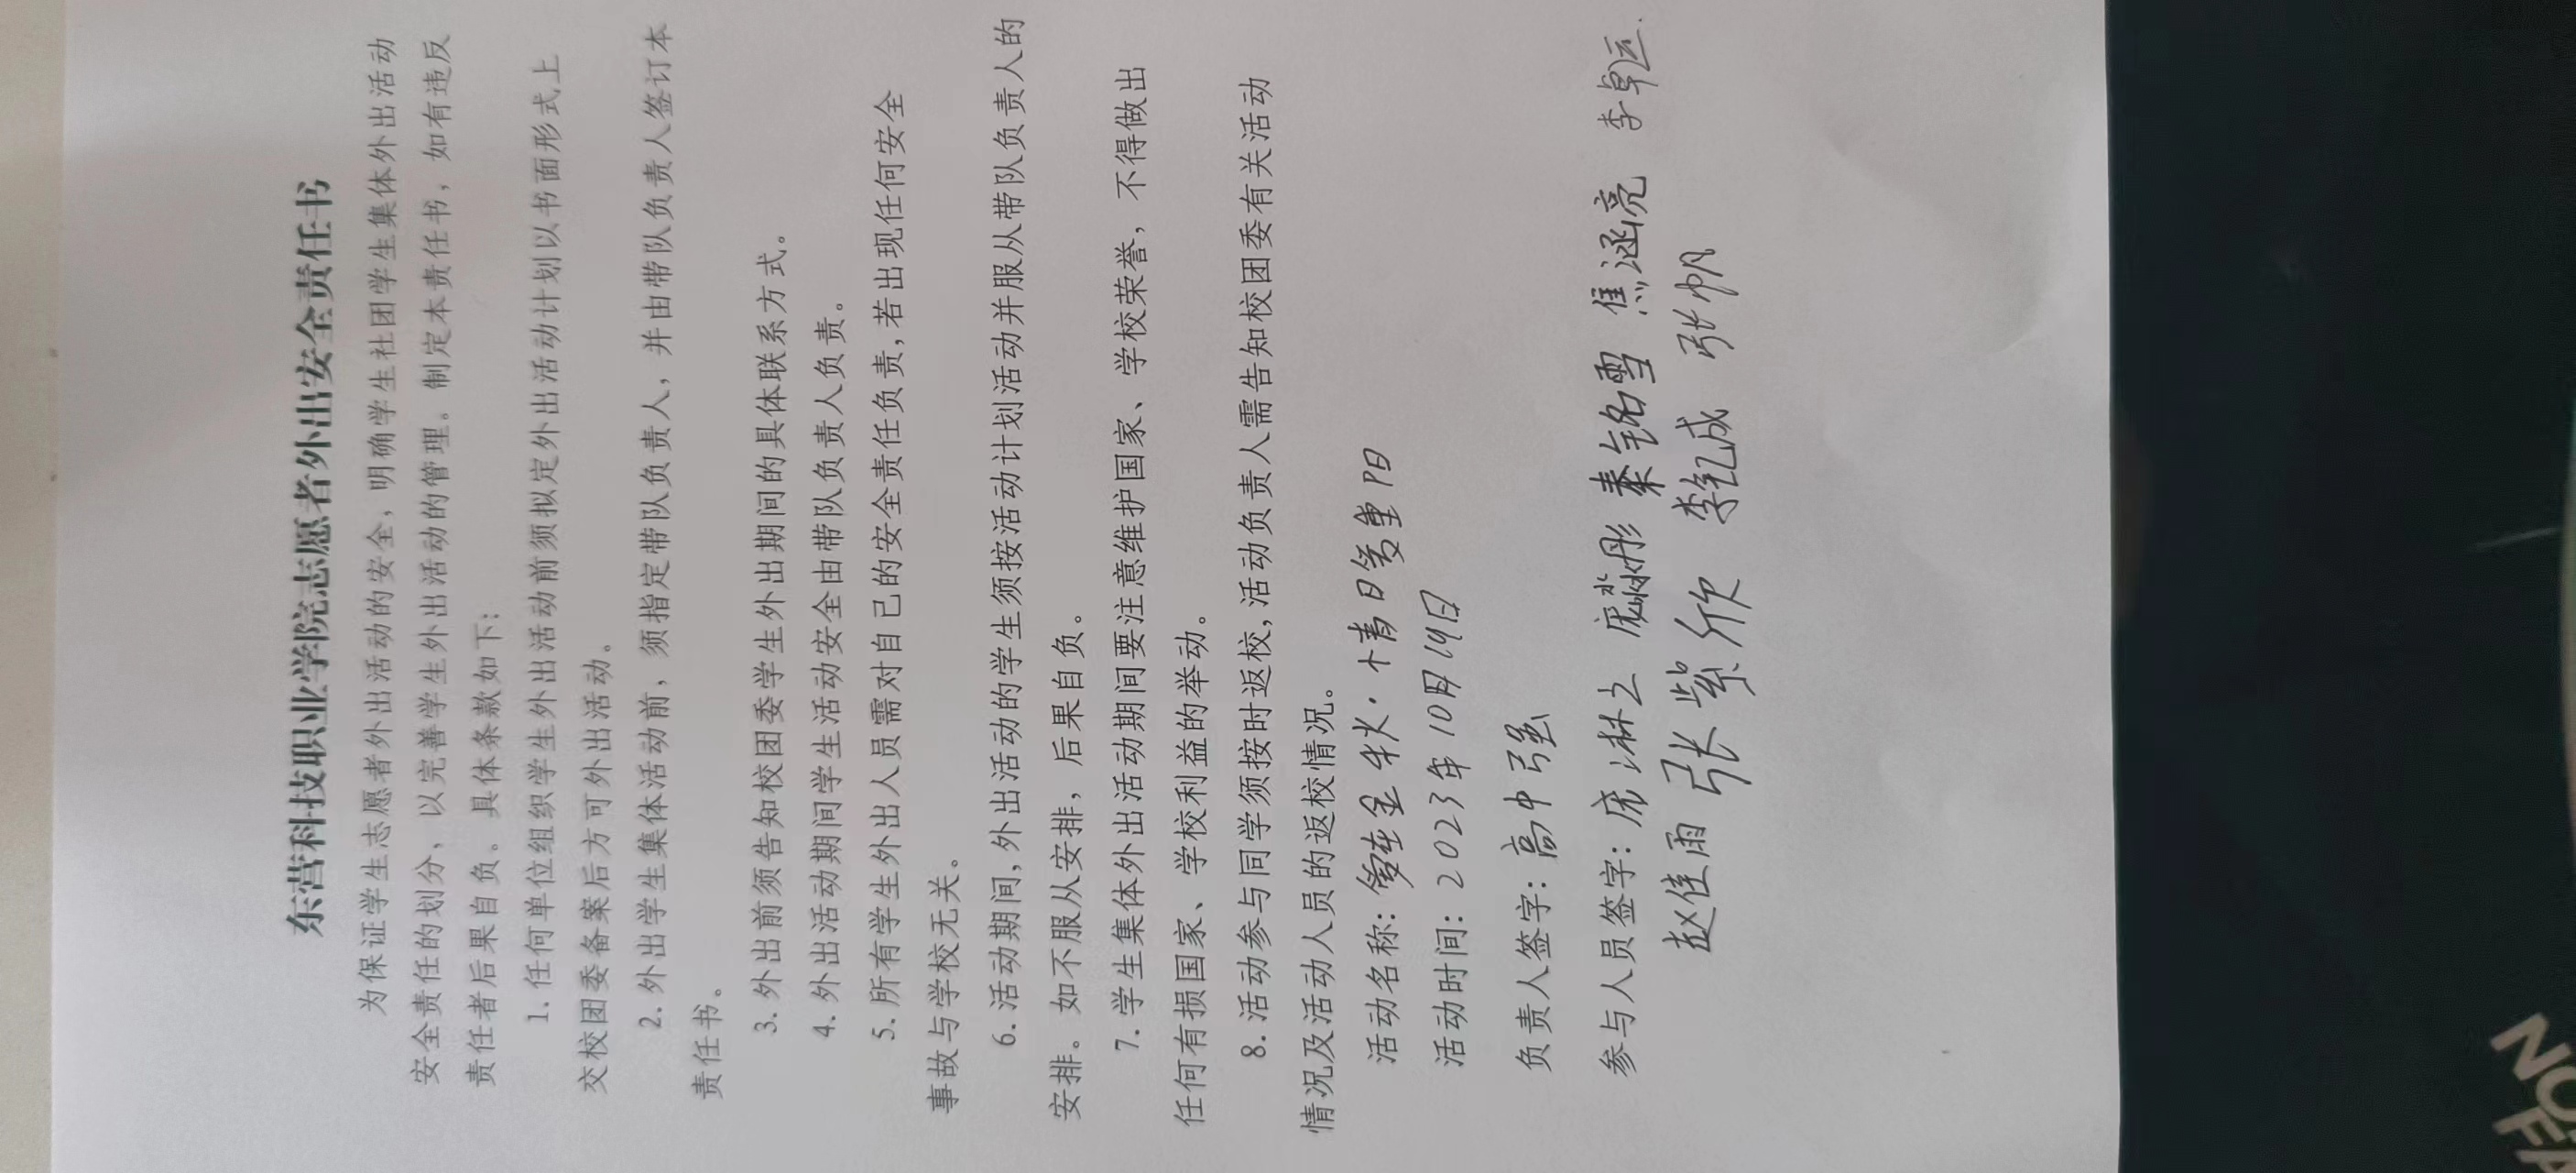 东营科技职业学院志愿者外出安全责任书
为保证学生志愿者外出活动的安全，明确学生社团学生集体外出活动
安全责任的划分、以完善学生外出活动的管理。制定本责任书，如有违反
责任者后果自负。具体条款如下：
1.任何单位组织学生外出活动前须拟定外出活动计划以书面形式上
交校团委备案后方可外出活动。
2.外出学生集体活动前，须指定带队负责人，并由带队负责人签订本
责任书。
3.外出前须告知校团委学生外出期间的具体联系方式。
4.外出活动期间学生活动安全由带队负责人负责。
5.所有学生外出人员需对自己的安全责任负责,若出现任何安全
事故与学校无关。
6.活动期间,外出活动的学生须按活动计划活动并服从带队负责人的
安排。如不服从安排，后果自负。
7.学生集体外出活动期间要注意维护国家、学校荣誉，不得做出
任何有损国家、学校利益的举动。
8.活动参与同学须按时返校,活动负责人需告知校团委有关活动
情况及活动人员的返校情况。
活动名称: 爱在金秋·情日爱重阳
活动时间: 2023年10月19日
负责人签字: 高中强
参与人员签字: 庞淋之 庞淼彤 秦铭雪 焦涵亮 李卓运
赵佳雨 张紫欣 李钇成 张帆